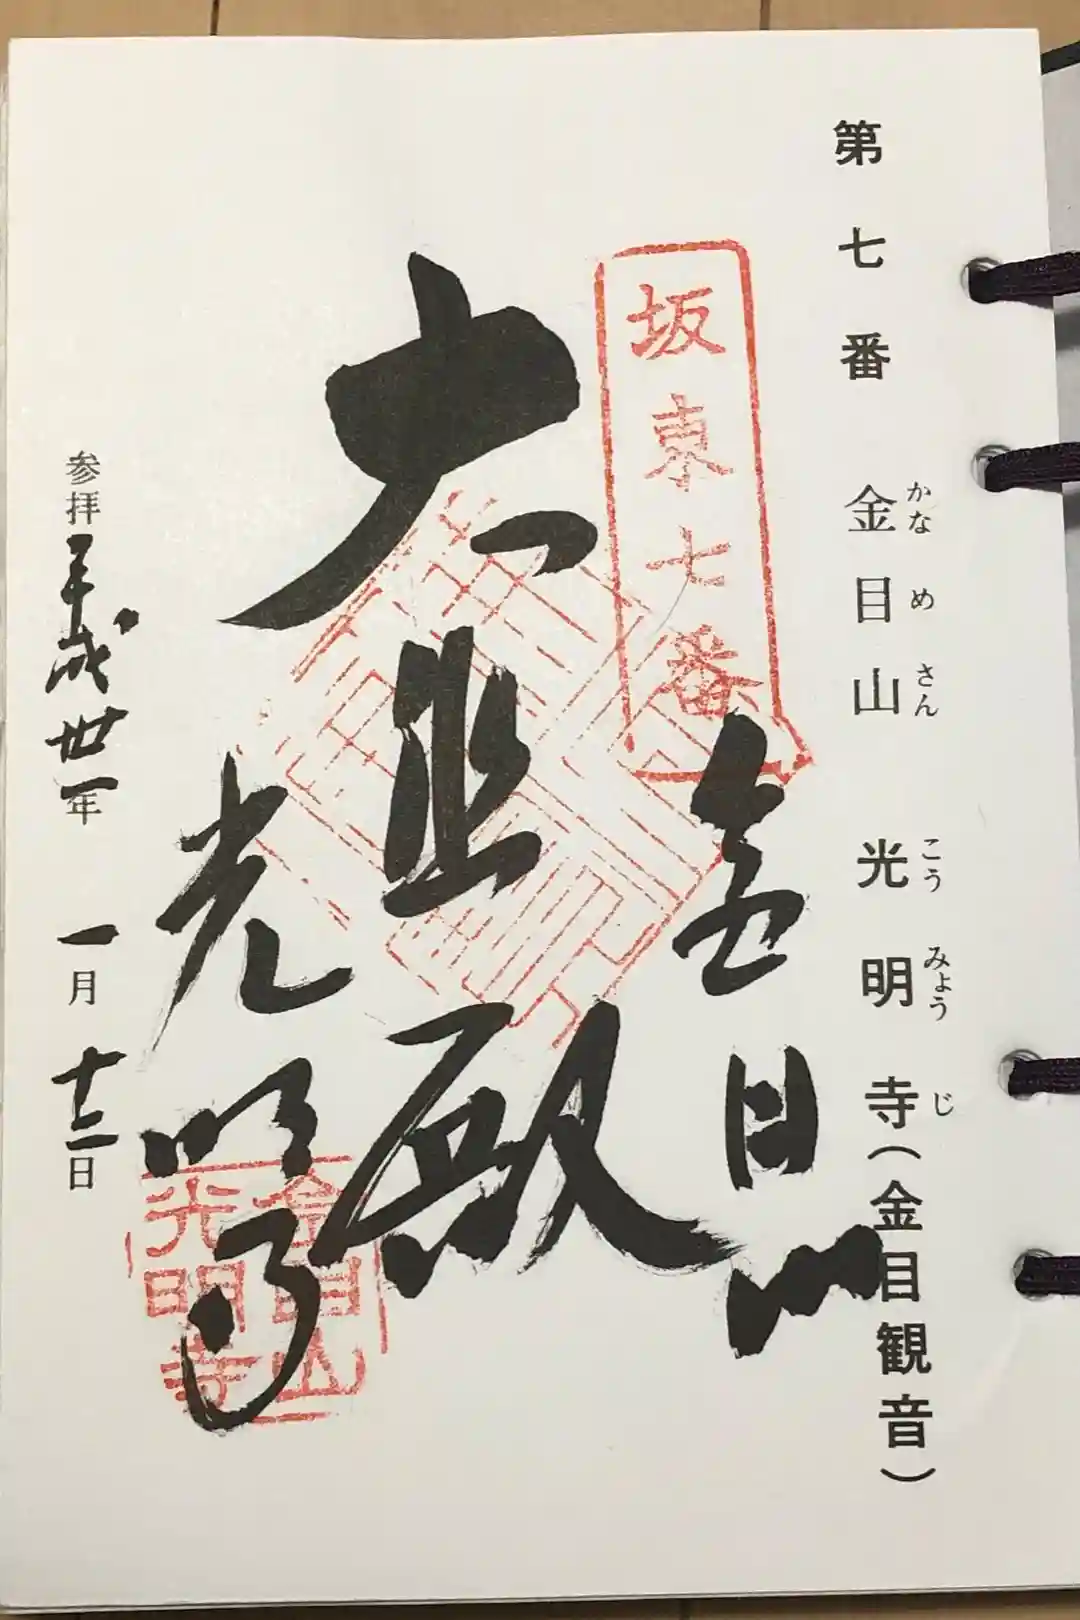 かなめさん こうみょうじ
第七番 金目山 光明寺(金目観音)
坂東七番
金目山
大悲殿
光明寺
金目山
光明寺
参拝平成卅一年 一月 十二日